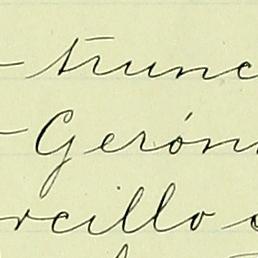 - trunc
- Gerón
rcillo